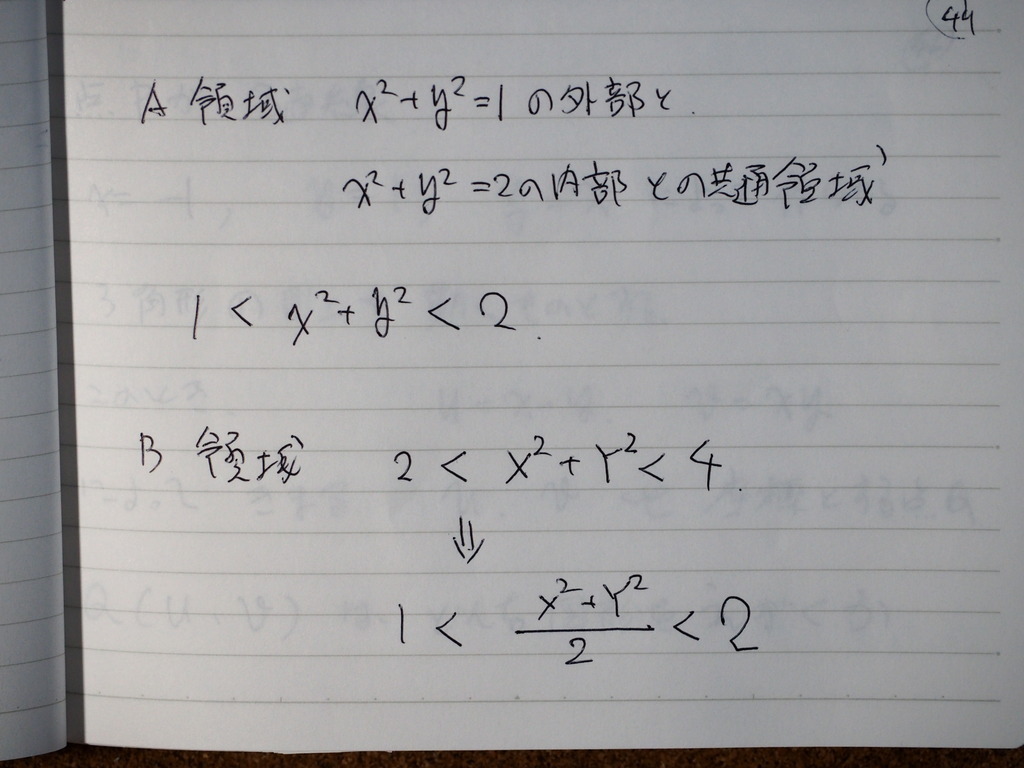 44
A 領域 x²+y²=1の外部と
x²+y²=2の内部との共通領域
1 < x²+y² < 2
B 領域 2 < X²+Y² < 4
⇓
1 < (X²+Y²)/2 < 2